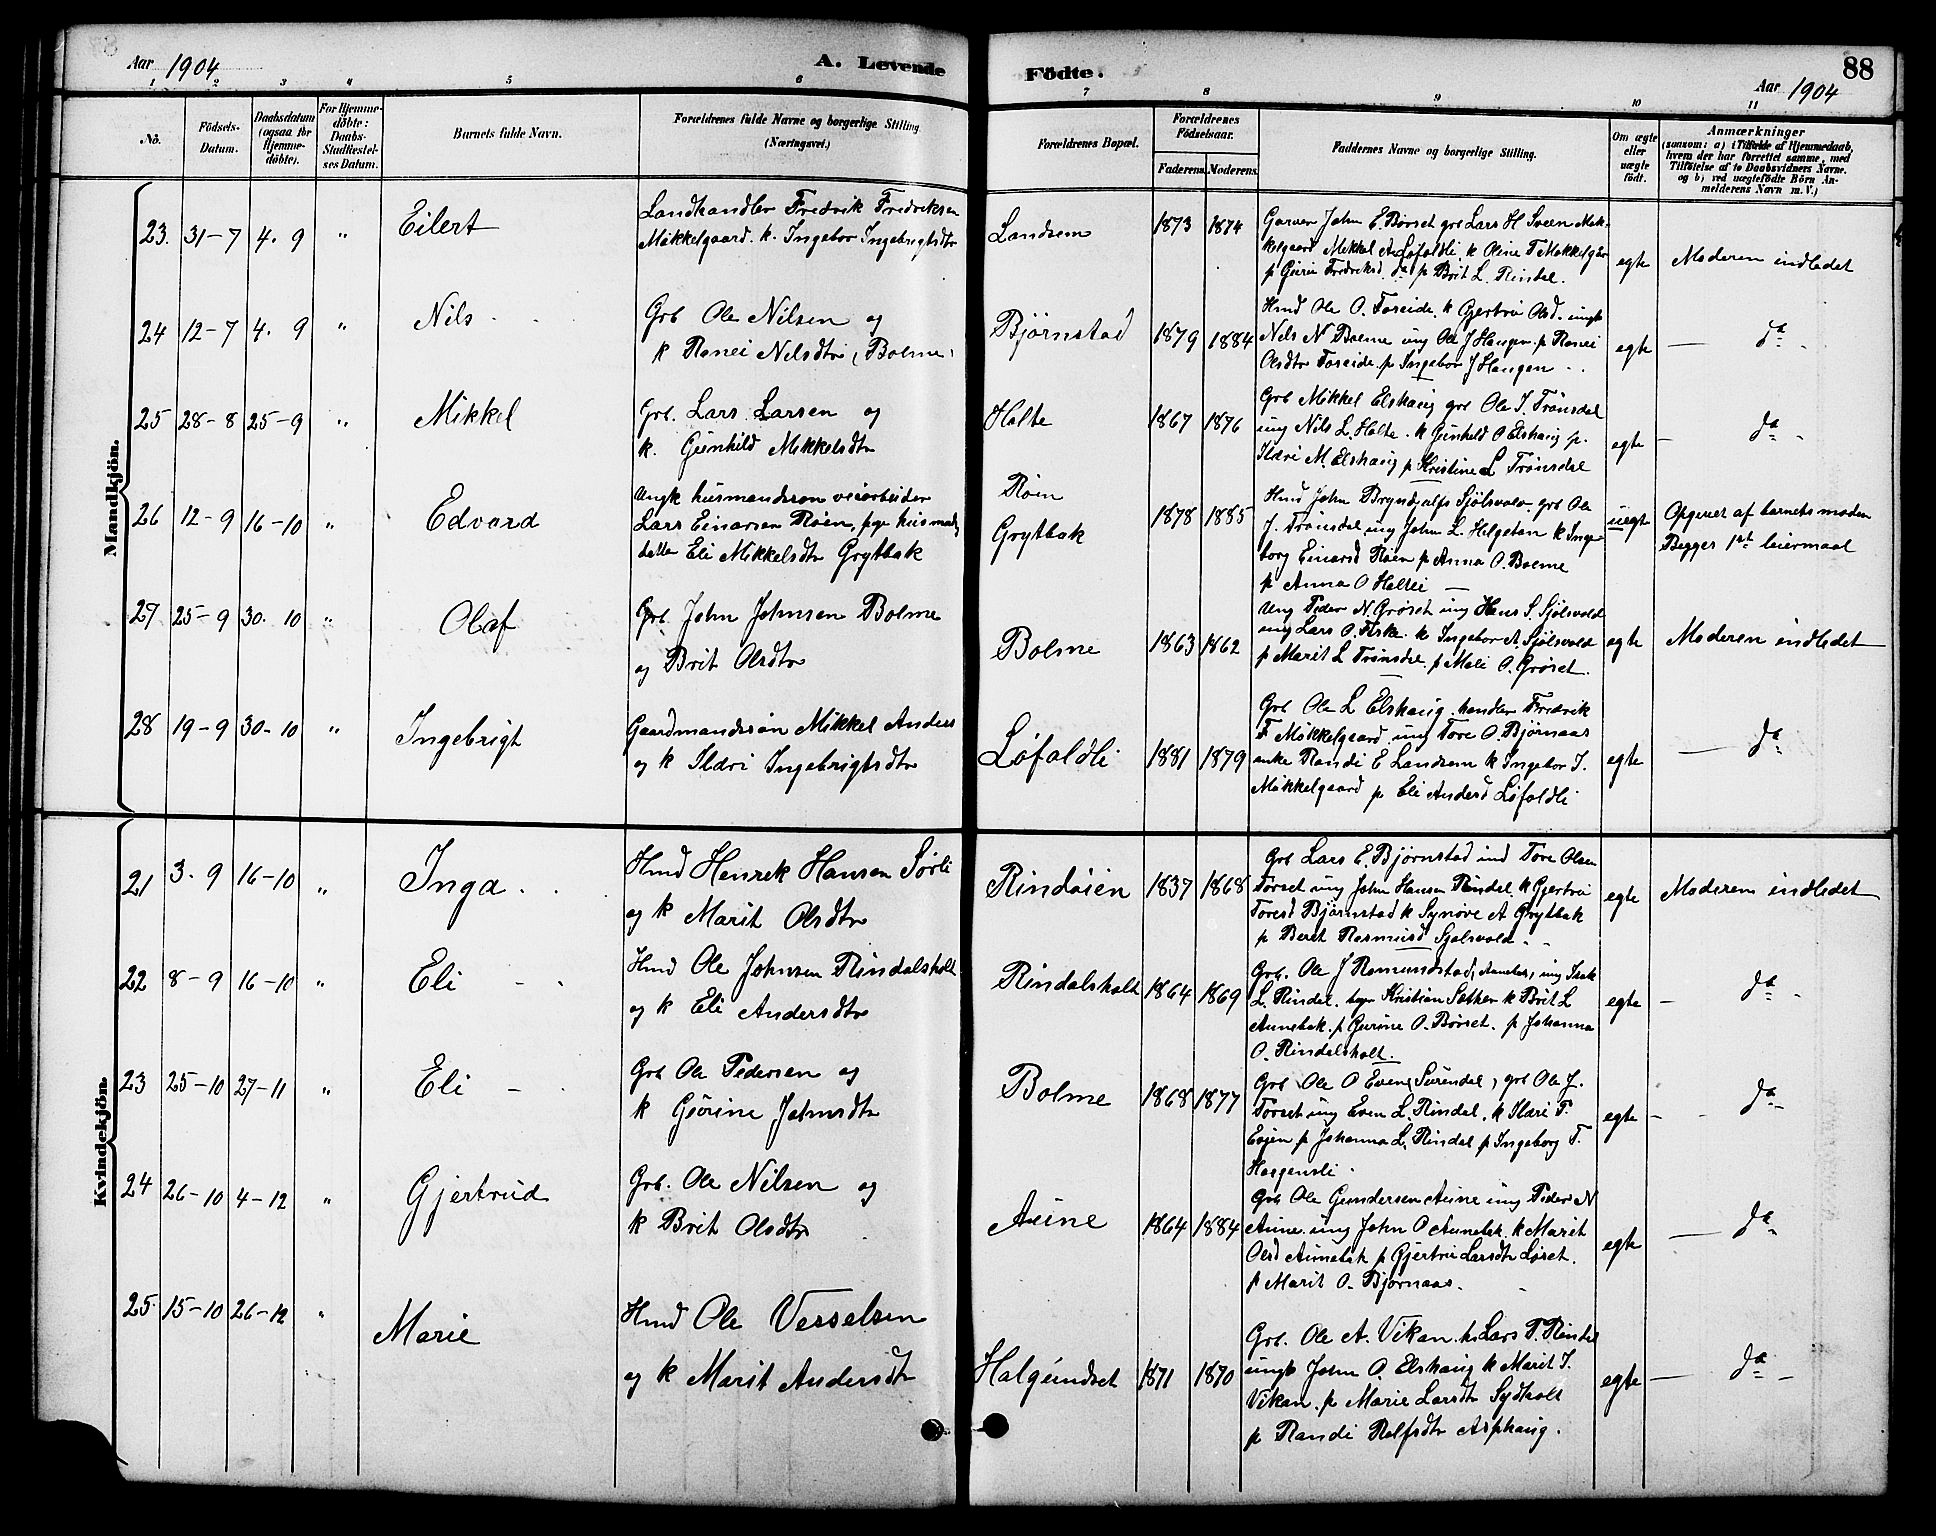 Aar 1904
A. Levende Fødte.
88
Aar 1904
1 2 3 4 5 6 7 8 9 10 11
No.
Födsels-Datum.
Daabsdatum (ogsaa for Hjemme-döbte).
For Hjemme-döbte: Daabs-Stadfæstel-ses Datum.
Barnets fulde Navn.
Forældrenes fulde Navne og borgerlige Stilling. (Næringsvei.)
Forældrenes Bopæl.
Forældrenes Födselsaar.
Faderens. Moderens.
Faddernes Navne og borgerlige Stilling.
Om ægte eller uægte födt.
Anmærkninger
(saasom: a) i Tilfælde af Hjemmedaab, hvem der har forrettet samme, med Tilföielse af to Daabsvidners Navne. og b) ved uægtefödte Börn An-melderens Navn m. V.)
Mandkjön.
23. 31-7 4. 9 " Eilert
Landhandler Fredrik Fredriksen
Møkkelgaard. k. Ingebor Ingebrigtsdtr
Landsem 1873 1874
Garver John E. Børset grb Lars H Sveen Møk-
kelgaard Mikkel A Løfaldli. k Oline F Møkkelgår
p Guri Fredriksd. do p Brit L. Rindal.
egte Moderen indledet
24 12-7 4. 9 " Nils
Grb Ole Nilsen og
k Ranei Nilsdtr (Bolme)
Bjørnstad 1879 1884
Hmd Ole O. Foreide. k Gjertru Olsd. ungk
Nils N Bolme ung Ole J Haugen. p Ranei
Olsdtr Foreide. p Ingebor J Haugen
egte — da
25 28-8 25-9 " Mikkel
Grb. Lars Larsen og
k. Gunhild Mikkelsdtr
Halte 1867 1876
Grb Mikkel Elshaug grb Ole I. Trønsdal
ung Nils L. Halte. k Gunhild O Elshaug p.
Ildri M. Elshaug p Kristine L Trønsdal
egte — da
26 12-9 16-10 " Edvard
Ungk husmandssøn veiarbeider
Lars Einarsen Røen, pge husmands
datter Eli Mikkelsdtr Grytbak
Røen
Grytbak 1878 1885
Hmd John Bryndjulfs Sjølsvold. grb Ole
J. Trønsdal ung John L. Helgetun k Inge
borg Einarsd Røen p Anna O. Bolme
p Anna O Haltli
uegte Opgivet af barnets moder
Begges 1ste leiermaal
27 25-9 30. 10 " Olaf
Grb. John Johnsen Bolme
og Brit Olsdtr
Bolme 1863 1862
Ung Peder N. Grøset ung Hans S. Sjølsvold
ung Lars O. Fiske. k Ingebor A. Sjølsvold
p Marit L Trønsdal. p Mali O. Grøset.
egte Moderen indledet
28 19-9 30-10 " Ingebrigt
Gaardmandssøn Mikkel Anders
og k Ildri Ingebrigtsdtr
Løfaldli 1881 1879
Grb Ole L Elshaug. handler Fredrik
F Møkkelgaard. ung Tore O. Bjørnaas
enke Randi E Landsem k Ingebor I.
Møkkelgaard p Eli Andersd Løfaldli
egte — da
Kvindekjön.
21 3. 9 16-10 " Inga
Hmd Henrik Hansen Sørli
og k Marit Olsdtr
Rindøien 1837 1868
Grb Lars E. Bjørnstad ind Tore Olsen
Torset ung John Hansen Rindal k Gjertru
Toresd Bjørnstad k Synøve A Grytbak
p Beret Rasmusd Sjølsvold
egte Moderen indledet
22 8-9 16-10 " Eli
Hmd Ole Johnsen Rindalsholt
og k Eli Andersdtr
Rindalsholt 1864 1869
Grb. Ole J Romundstad, Aunebak, ung Isak
L. Rindal. Kristian Sæther k Brit L
Aunebak. p Gurine O. Børset. p Johanna
O. Rindalsholt.
egte — da
23 25-10 27-11 " Eli
Grb Ole Pedersen og
k Gurine Johnsdtr
Bolme 1868 1877
Grb Ole O Even (Surendal) grb Ole J.
Torset ung Even L. Rindal. k Ildri T.
Evjen p Johanna L. Rindal p Ingeborg T.
egte — da
24 26-10 4-12 " Gjertrud
Grb. Ole Nilsen og
k Brit Olsdtr
Aune 1864 1884
Grb Ole Gundersen Aune ung Peder N
Aune. ung John O Aunebak. k Marit
Olsd Aunebak p Gjertru Larsdtr Løset.
p Marit O. Bjørnaas.
egte — da
25. 15-10 26-12 " Marie
Hmd Ole Vesselsen
og k Marit Andersdtr
Halgundset 1871 1870
Grb. Ole A. Vikan. Lars T. Rindal
ungk John O. Elshaug k Marit I.
Vikan. p Marie Larsdtr Sydhalt
p Randi Rolfsdtr Asphaug.
egte — da